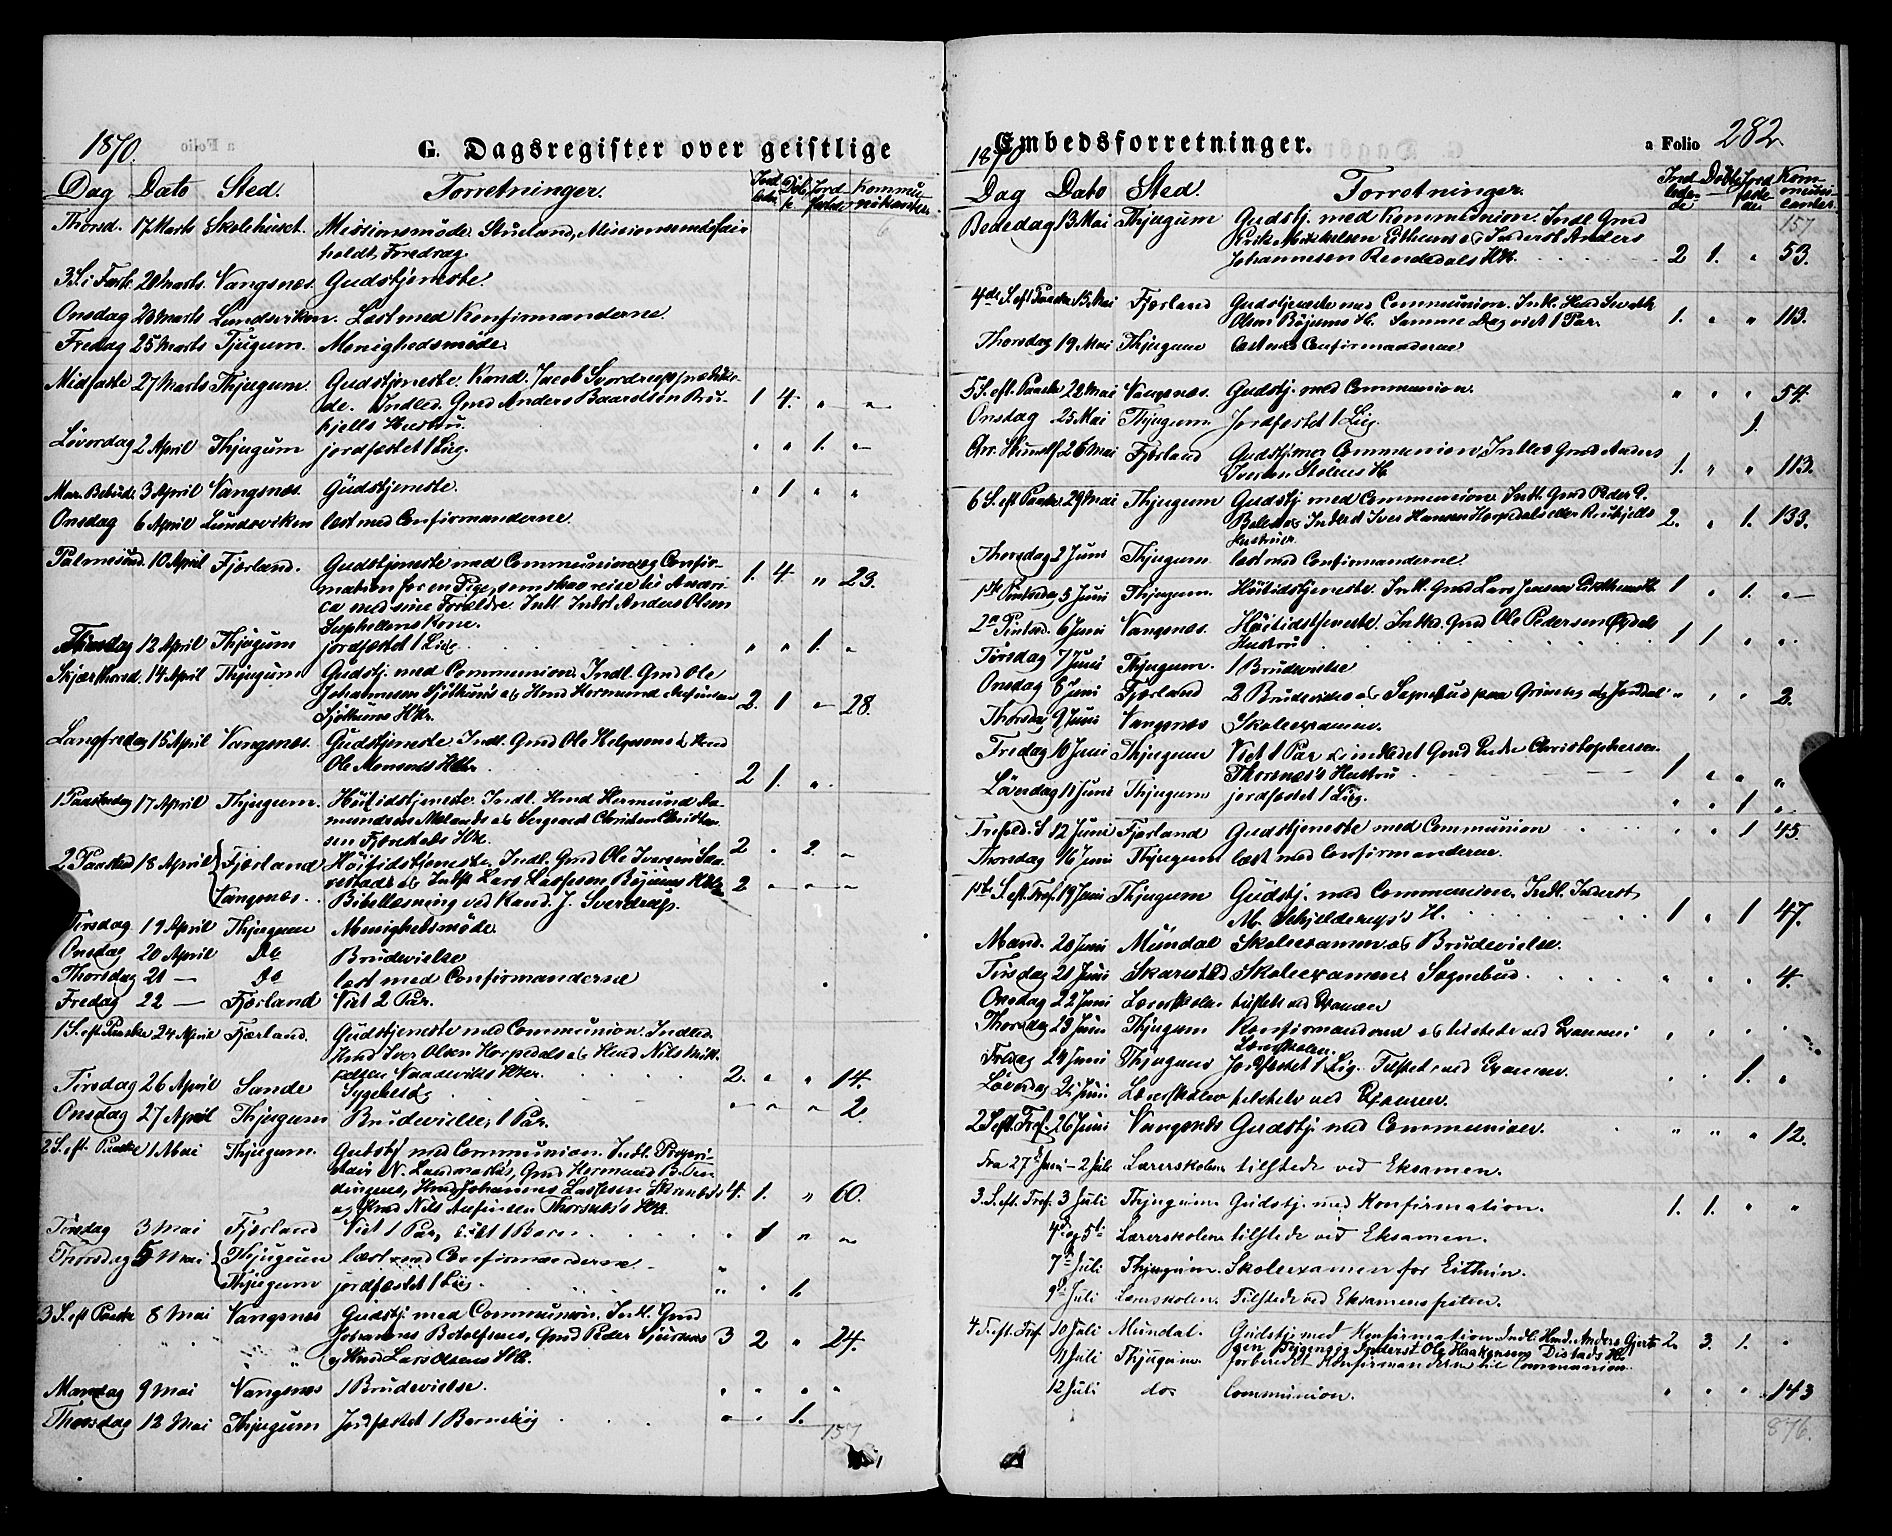 1870.
G. Dagsregister over geistlige
Dag Dato Sted. Forretninger. Indledn. Døbte Jordfæstede Kommunikanter
Thorsd. 17 Marts Skolehuset. Missionsmøde. Missionsudsendt
holdt Foredrag.
3 S. i Faste 20 Marts Vangsnæs. Gudstjeneste.
Onsdag 23 Marts Lundsviken. Læst med Konfirmanderne
Fredag 25 Marts Tjugum. Menighedsmøde.
Midfaste 27 Marts Thjugum. Gudstjeneste. Kand. Jacob Sverdrup prædike-
de. Indled. Gmd Anders Baardsen Bru- 1 4. „ „
kjells Hustru.
Løverdag 2 April Thjugum jordfæstet 1 Lig. „ „ 1. „
Mar. Bebud. 3 April Vangsnæs. Gudstjeneste. „ 1 „ „
Onsdag 6 April Lundsviken læst med Confirmanderne.
Palmesønd. 10 April Fjærland. Gudstjeneste med Communion og Confir-
mation for en Pige, som skal reise til Ameri- 1. 4. „ 23.
ca med sine Forældre. Indl. Indst Anders Olsen
Suphellens Kone.
Tirsdag 12 April Thjugum jordfæstet 1 Lig „ „ 1. „
Skjærthorsd. 14 April Thjugum Gudstj. med Communion. Indl. Gmd Ole
Johannesen Sjøthuns og Hmd Hermund 2. 1 „ 28.
Sjøthuns Hkr.
Langfredag 15 April Vangsnæs. Gudstjeneste. Indl. Gmd Ole Helgesens & Hmd
Ole Monsens Hkr. 2 1. „
1 Paaskedag 17 April Thjugum. Høitidstjeneste. Indl. Hmd Hermund Aa-
mundsen Melands og Sergeant Christen Christen-
sen Fjærestads Hkr. 2 „ 2. „
2. Paasked 18 April Fjærland Høitidstjeneste. Indl. Gmd Ole Iversen
og Indst Lars Lassesen Bøjums Hkr 2 „ „ „
Vangsnæs. Bibellæsning ved Kand. J. Sverdrup.
Tirsdag 19 April Thjugum Menighedsmøde.
Onsdag 20 April Do Brudevielse
Thorsdag 21 — Do læst med Confirmanderne
Fredag 22 — Fjærland Viet 2 Par.
1 S. eft Paaske 24 April Fjærland. Gudstjeneste med Communion. Indled.
Hmd Iver Olsen Horpedals og Hmd Nils Mik-
kelsen Vaadeviks Hkr. 2. „ „ 14.
Tirsdag 26 April Sande Sygebesøg „ „ „ 2.
Onsdag 27 April Thjugum Brudevielse, 1 Par.
2 S. eft. Paaske 1 Mai Thjugum. Gudstj med Communion. Indl. Propri-
etair N. Landmarks, Gmd Hermund B. Fen-
dingens, Hmd Johannes Lassesen 4. 1. „ 60.
og Gmd Nils Thorsnæs's Hkr
Tirsdag 3 Mai Fjærland Viet 1 Par, døbt 1 Barn. „ 1 „ „
Thorsdag 5 Mai Thjugum læst med Confirmanderne. „
Thjugum jordfæstet 1 Lig. „ „ 1.
3 S. eft Paaske 8 Mai Vangsnæs Gudstj med Communion. Indl. Gmd
Johannes Botolfsens, Gmd Peder 3 2 „ 24.
& Hmd Lars Olsens Hkr.
Mandag 9 Mai Vangsnæs 1 Brudevielse. „ „ „ „
Thorsdag 12 Mai Thjugum Jordfæstet 1 Barnelig „ „ 1.
157
1870
Embedsforretninger.
a Folio 282.
Dag Dato Sted. Forretninger. Indledede Døbte Jordfæstede Kommunicanter.
157
Bededag 13 Mai Thjugum Gudstj. med Kommunion. Indl. Gmd
Erik Mikkelsen Eithuns og Inderst Anders
Johannesen Rendedals Hkr. 2 1. „ 53.
4de S. eft Paaske 15 Mai Fjærland Gudstjeneste med Communion. Indl. Hmd
Olsen Bøjums H. Samme Dag viet 1 Par. 1. „ „ 113.
Thorsdag 19 Mai Thjugum læst med Confirmanderne
5 S. eft. Paaske 22 Mai Vangsnæs. Gudstj. med Communion. „ „ „ 54.
Onsdag 25 Mai Thjugum Jordfæstet 1 Lig. 1.
Chr. Himmelf. 26 Mai Fjærland Gudstj. med Communion, Indled. Gmd Anders
Iversen Stølens H. 1. „ „ 113.
6 S. eft Paaske 29 Mai Thjugum Gudstj. med Communion. Indl. Gmd Peder P.
og Indled Iver Hansen Horpedals eller Brukjells 2. „ 1. 133.
Hustruer.
Thorsdag 2 Juni Thjugum læst med Confirmanderne.
1ste Pintsedag 5 Juni Thjugum. Høitidstjeneste. Indl. Gmd Lars Jensen H. 1 „ 1. „
2n Pintsed. 6 Juni Vangsnæs. Høitidstjeneste. Indled. Gmd Ole Pedersen
Hustru 1 1. „ „
Tirsdag 7 Juni Thjugum. 1 Brudevielse
Onsdag 8 Juni Fjærland 2 Brudevielser og Sognebud paa og Jordal „ „ „ 2.
Thorsdag 9 Juni Vangsnæs Skoleexamen.
Fredag 10 Juni Thjugum Viet 1 Par & indledet Gmd Peder Christophersen
Thorsnæs's Hustru 1 „ „ „
Løverdag 11 Juni Thjugum jordfæstet 1 Lig. „ „ 1 „
Trefold. S 12 Juni Fjærland Gudstjeneste med Communion „ „ 1 45.
Thorsdag 16 Juni Thjugum læst med Confirmanderne.
1ste S. eft Tref. 19 Juni Thjugum Gudstj. med Communion. Indl. Inderst
M. Schjelderup's H. 1 „ 1 47.
Mand. 20 Juni Mundal Skoleexamen og Brudevielse.
Tirsdag 21 Juni Skarestad Skoleexamen Sognebud. „ „ „ 4.
Onsdag 22 Juni Lærerskolen tilstede ved Examen
Thorsdag 23 Juni Thjugum Konfirmanderne og tilstede ved Examen i „ „ „ „
Lærerskolen
Fredag 24 Juni Thjugum Jordfæstet 1 Lig. Tilstede ved Examen. „ „ 1. „
Løverdag 25 Juni Lærerskolen tilstede ved Examen.
2 S. eft. Tref. 26 Juni Vangsnæs Gudstj med Communion. „ „ „ 12.
Fra 27de Juni – 2 Juli Lærerskolen tilstede ved Eksamen.
3. S. eft. Tref. 3 Juli Thjugum Gudstj. med Konfirmation. 1. 1. „ „
4de og 5te Lærerskolen tilstede ved Eksamen.
7de Juli Thjugum. Skoleexamen for Eithun.
9de Juli Lærerskolen. Tilstede ved Eksamensfesten.
4 S. eft. Tref. 10 Juli Mundal. Gudstj med Konfirmation. Indl. Hmd. Anders Gjert-
sen og Inderst Ole Haakonsens Distads Hkr 2. 3. 1. „
11 Juli Thjugum. forberedet Konfirmanderne til Communion.
12 Juli do. Communion. „ „ „ 143
876.